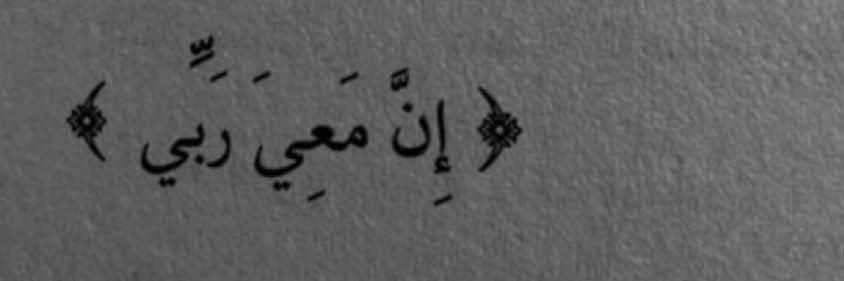 ﴿ إِنَّ مَعِيَ رَبِّي ﴾